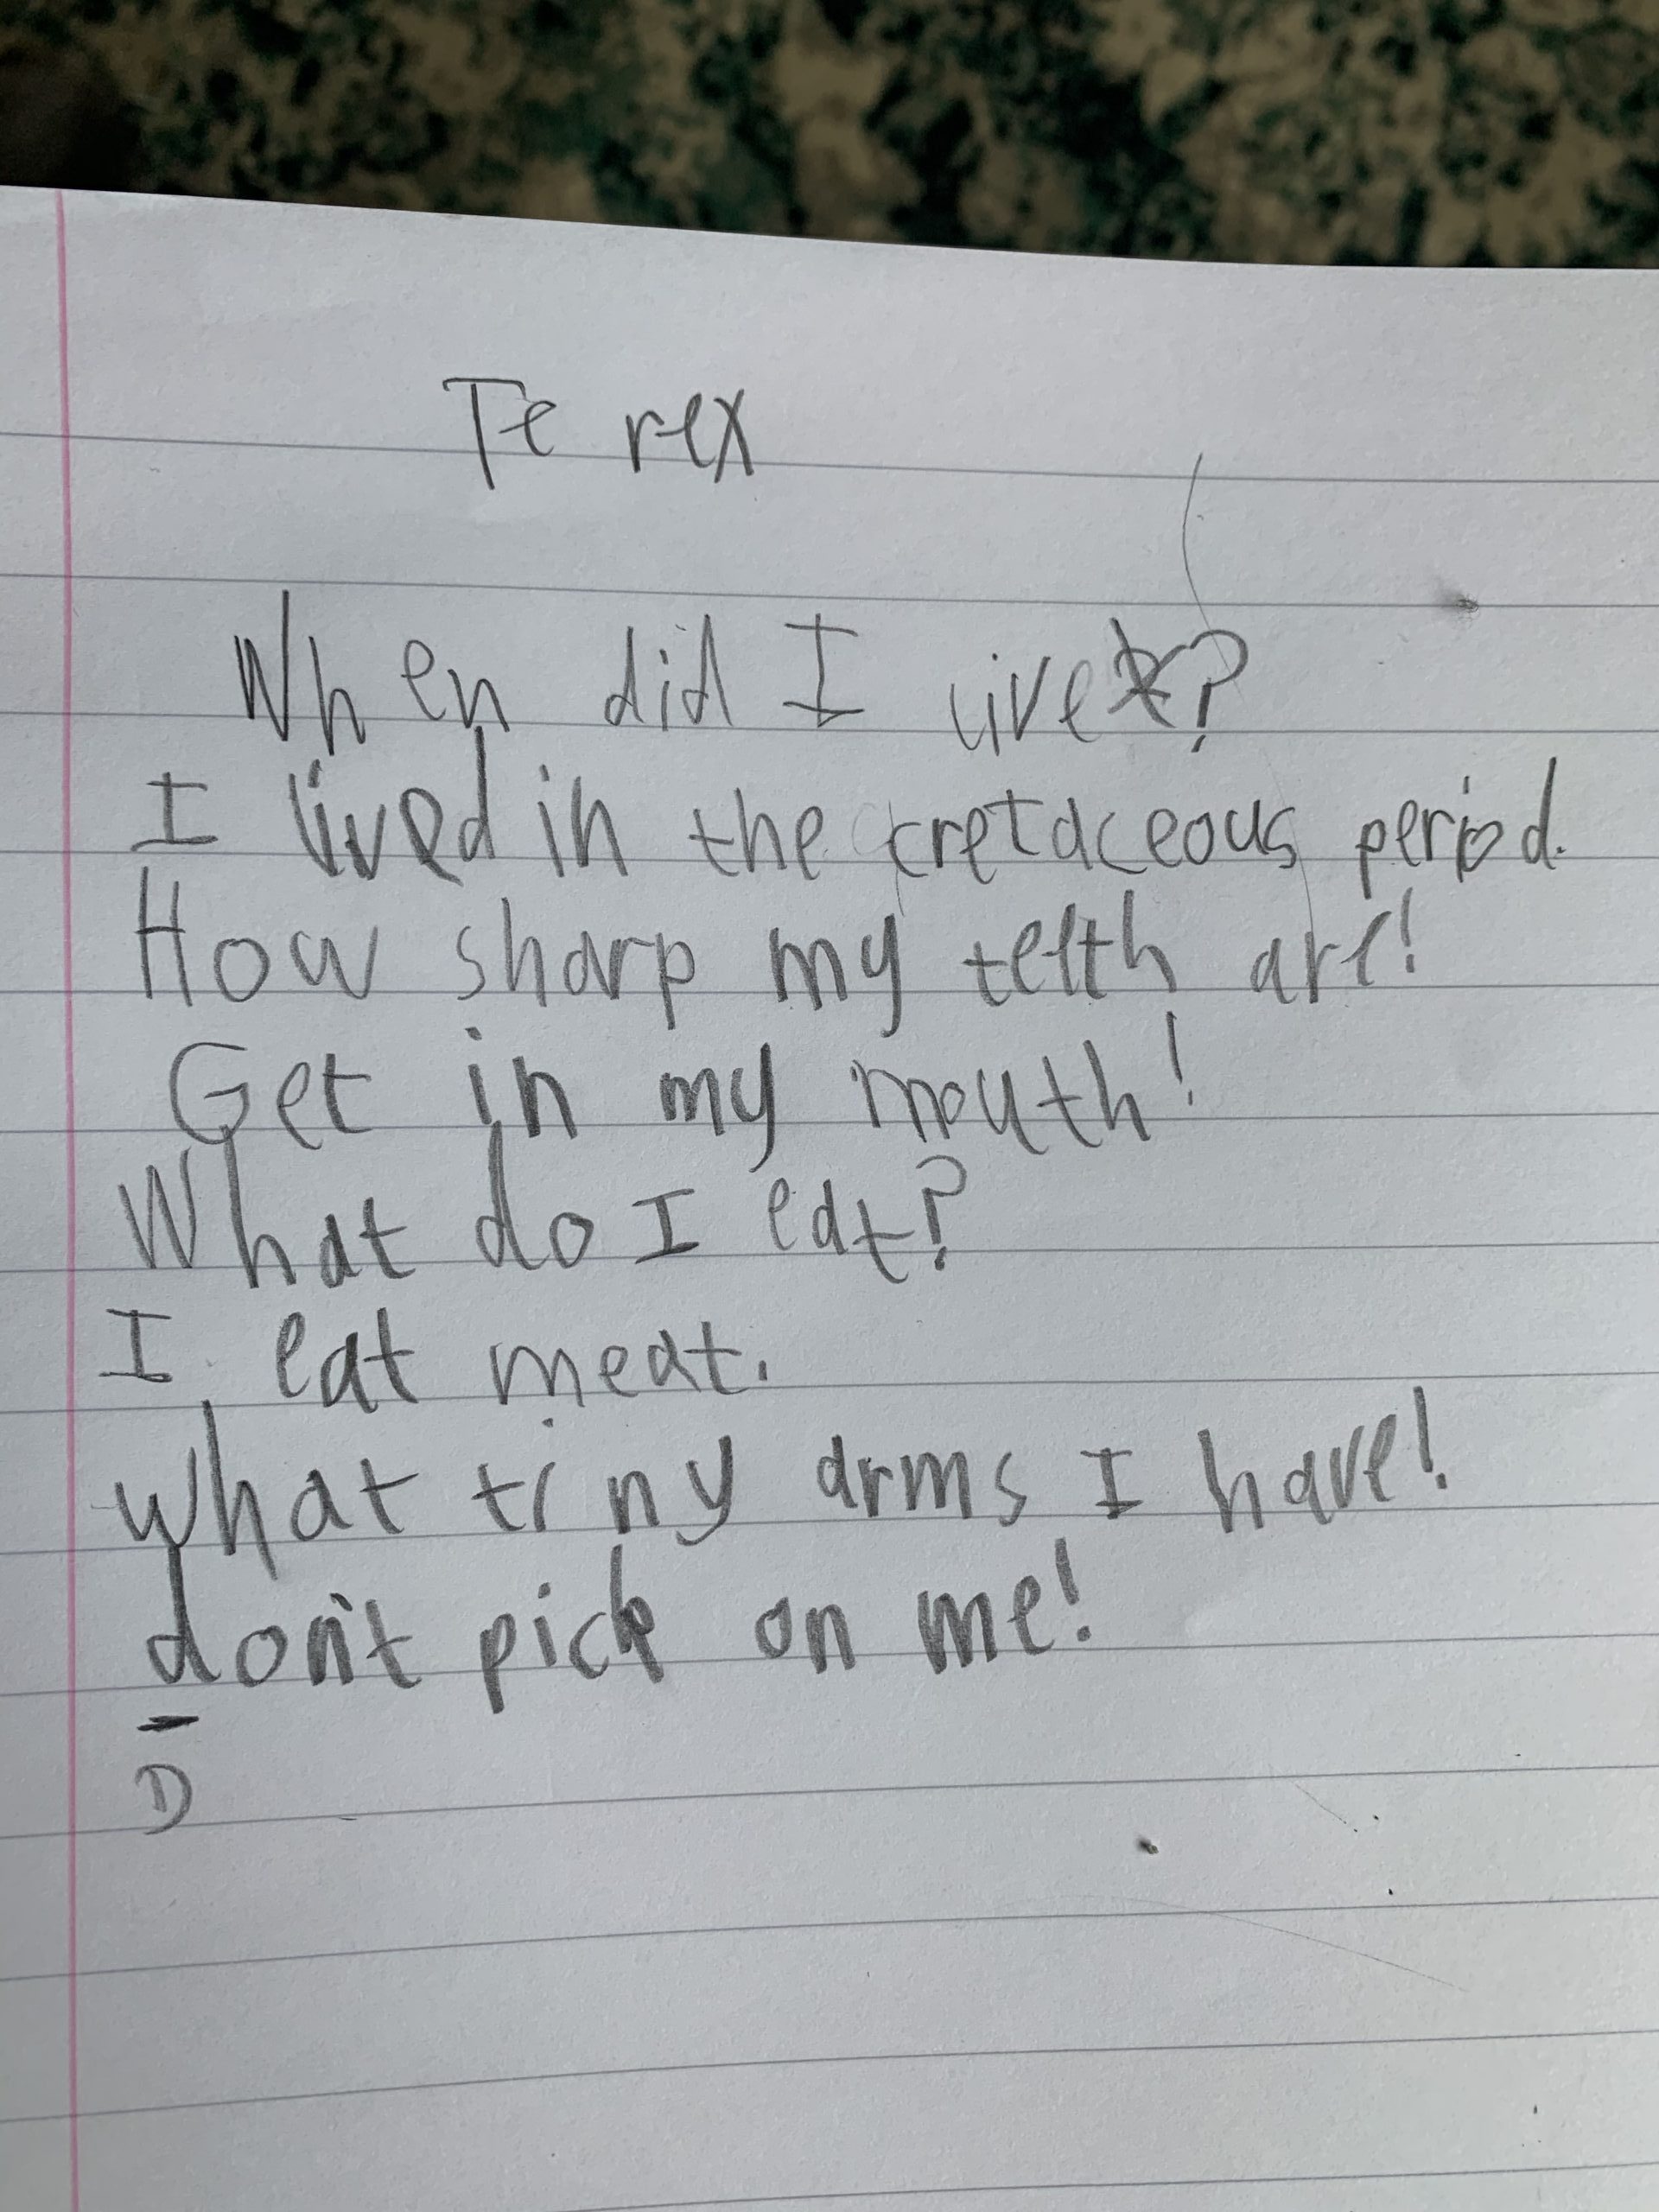 Te rex
When did I live?
I lived in the cretaceous period.
How sharp my teeth are!
Get in my mouth!
What do I eat?
I eat meat.
What tiny arms I have!
don't pick on me!
D